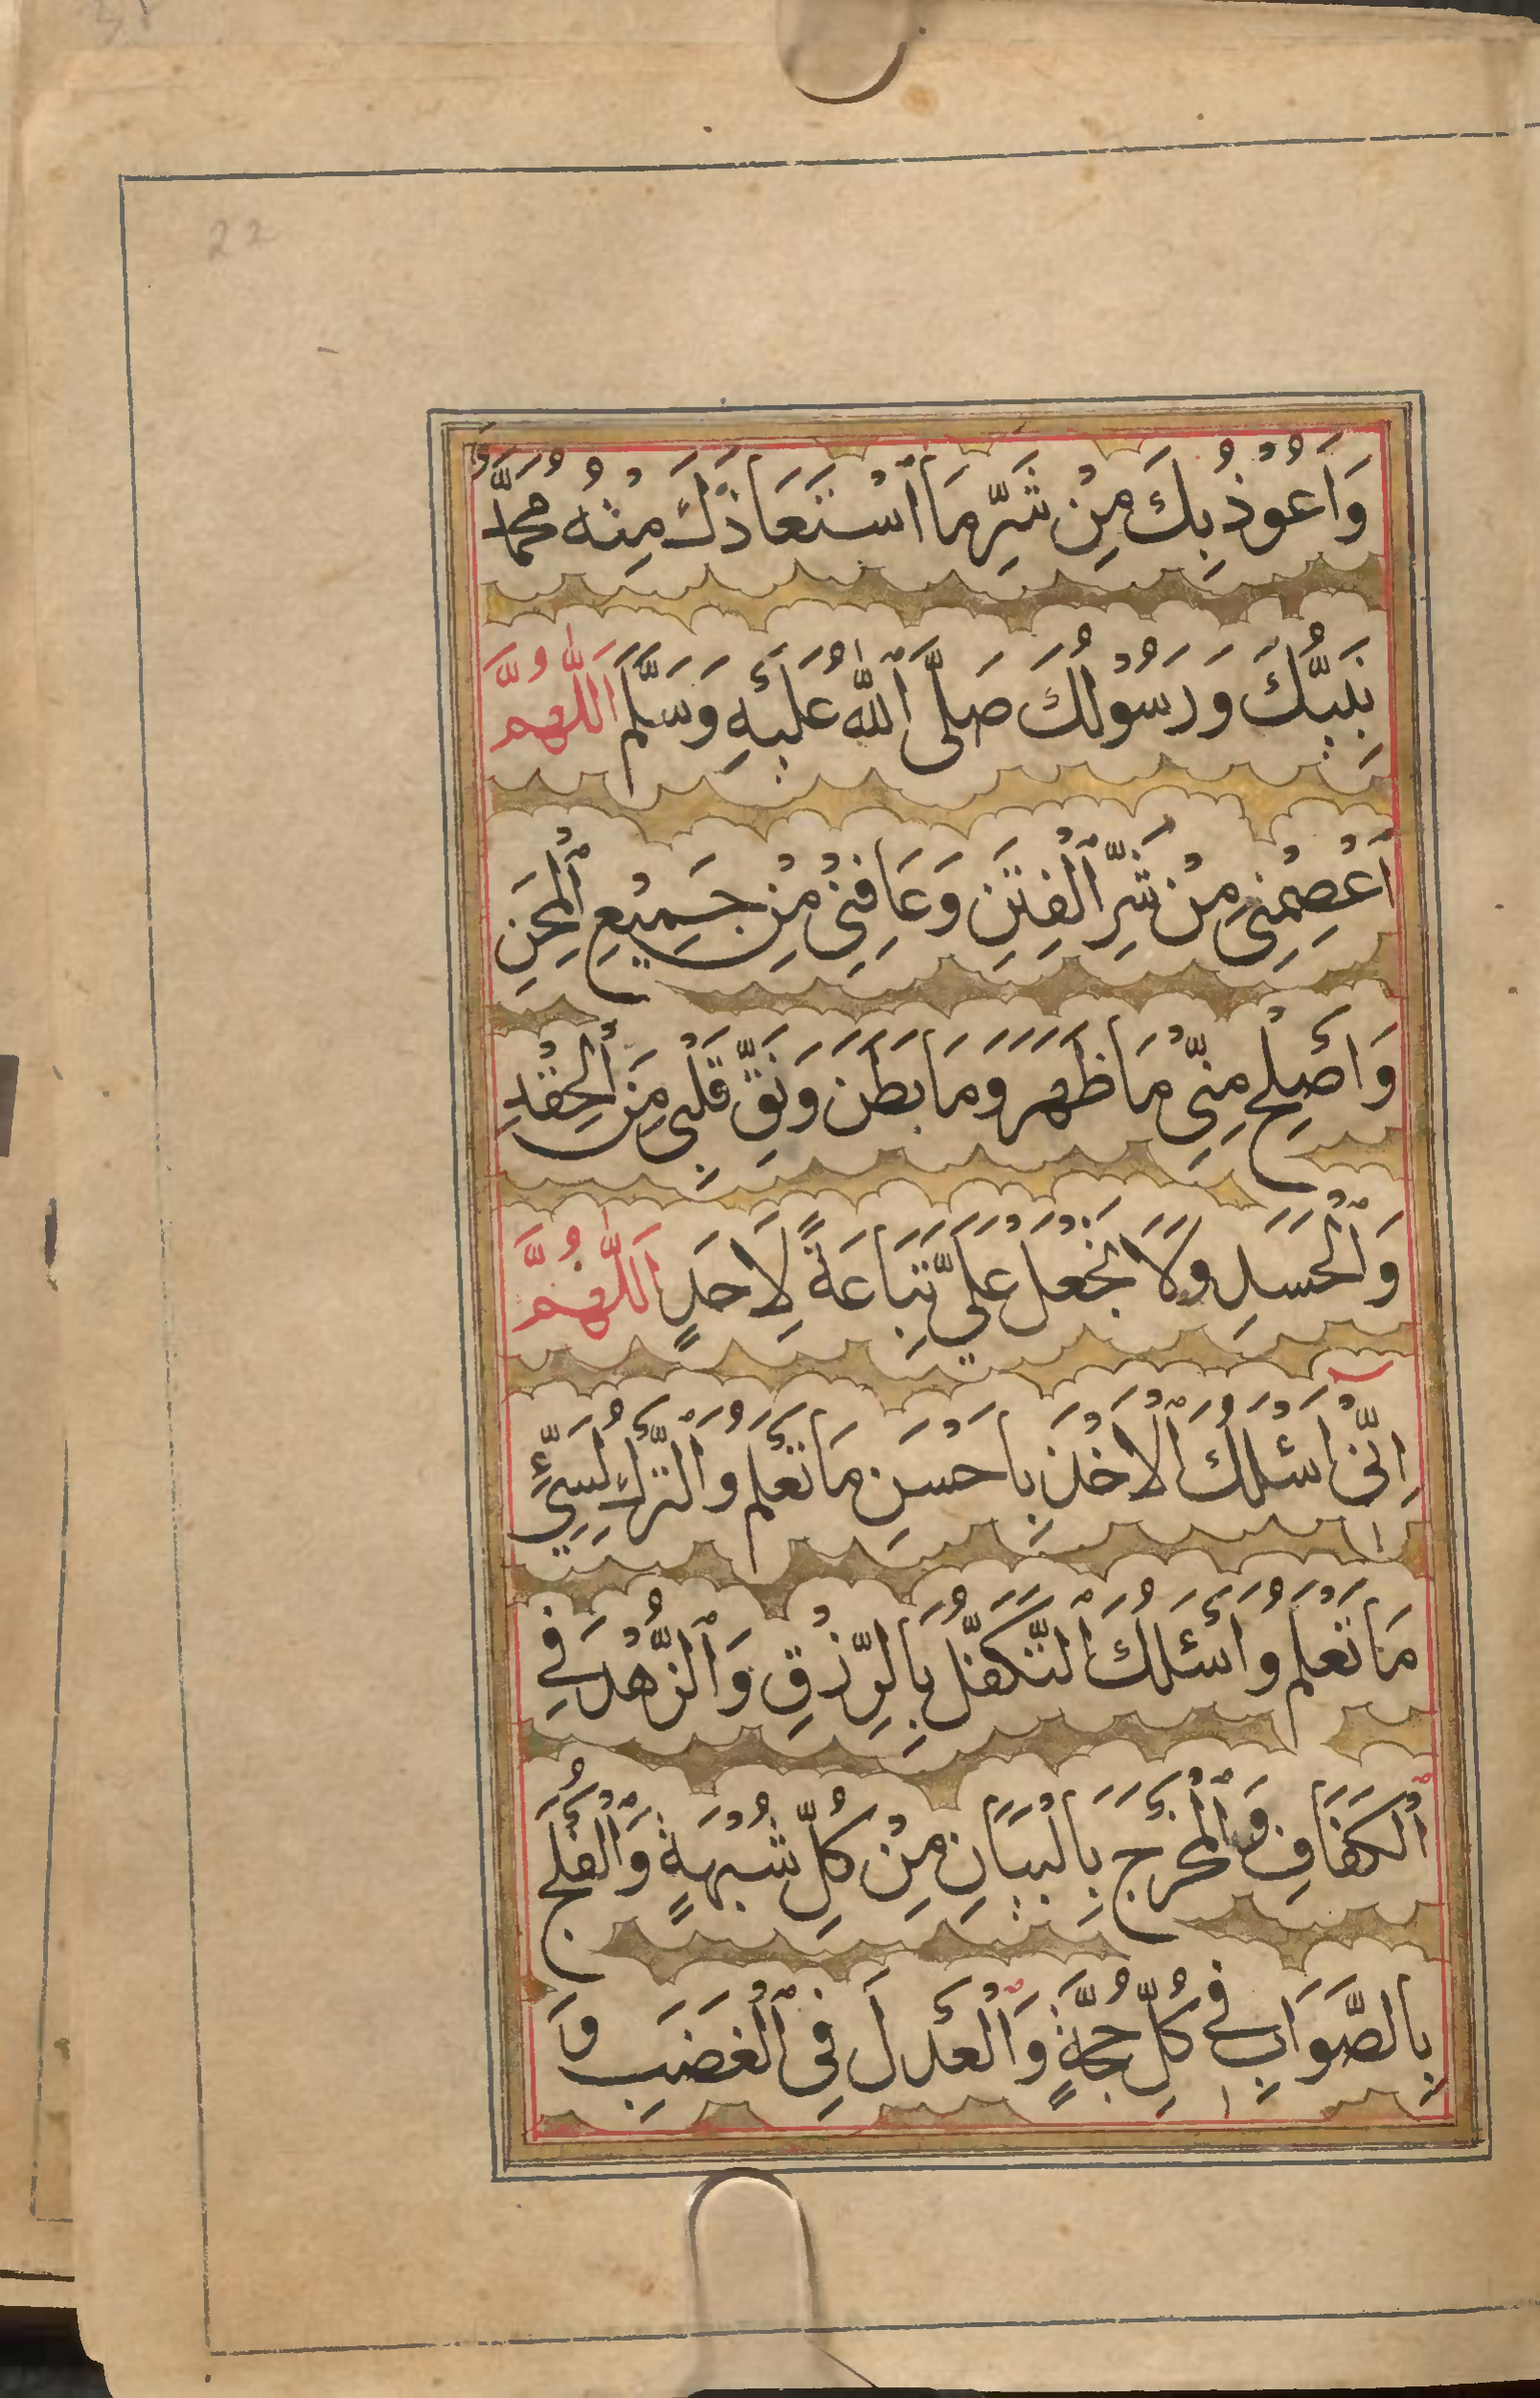 22
وَاَعُوْذُ بِكَ مِنْ شَرِّ مَا اسْتَعَاذَكَ مِنْهُ مُحَمَّدٌ
نَبِيُّكَ وَرَسُوْلُكَ صَلَّى اللّٰهُ عَلَيْهِ وَسَلَّمَ اَللّٰهُمَّ
اعْصِمْنِيْ مِنْ شَرِّ الْفِتَنِ وَعَافِنِيْ مِنْ جَمِيْعِ الْمِحَنِ
وَاَصْلِحْ مِنِّيْ مَا ظَهَرَ وَمَا بَطَنَ وَنَقِّ قَلْبِيْ مِنَ الْحِقْدِ
وَالْحَسَدِ وَلَا تَجْعَلْ عَلَيَّ تِبَاعَةً لِاَحَدٍ اَللّٰهُمَّ
اِنِّيْ اَسْئَلُكَ الْاَخْذَ بِاَحْسَنِ مَا تَعْلَمُ وَالتَّرْكَ لِسَيِّئِ
مَا تَعْلَمُ وَاَسْئَلُكَ التَّكَفُّلَ بِالرِّزْقِ وَالزُّهْدَ فِي
الْكَفَافِ وَالْمَخْرَجَ بِالْبَيَانِ مِنْ كُلِّ شُبْهَةٍ وَالْفَلَجَ
بِالصَّوَابِ فِيْ كُلِّ حُجَّةٍ وَالْعَدْلَ فِي الْغَضَبِ وَ